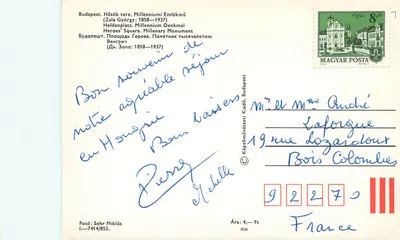 Budapest. Hősök tere. Millenniumi Emlékmű
(Zala György: 1858—1937)
Heldenplatz. Millennium Denkmal
Heroes' Square. Millenary Monument
Будапешт. Площадь Героев. Памятник тысячелетию
Венгрии
(Дь. Зала: 1858—1937)
Bon souvenir de
notre agréable séjour
en Hongrie
Bons baisers
Pierre
Michelle
Képzőművészeti Kiadó, Budapest
8 Ft
MAGYAR POSTA
Mr et Mme André
Laforgue
19 rue Lozardont
Bois Colombes
92270
France
Fotó: Sehr Miklós
I.—7414/852.
Ára: 4,— Ft